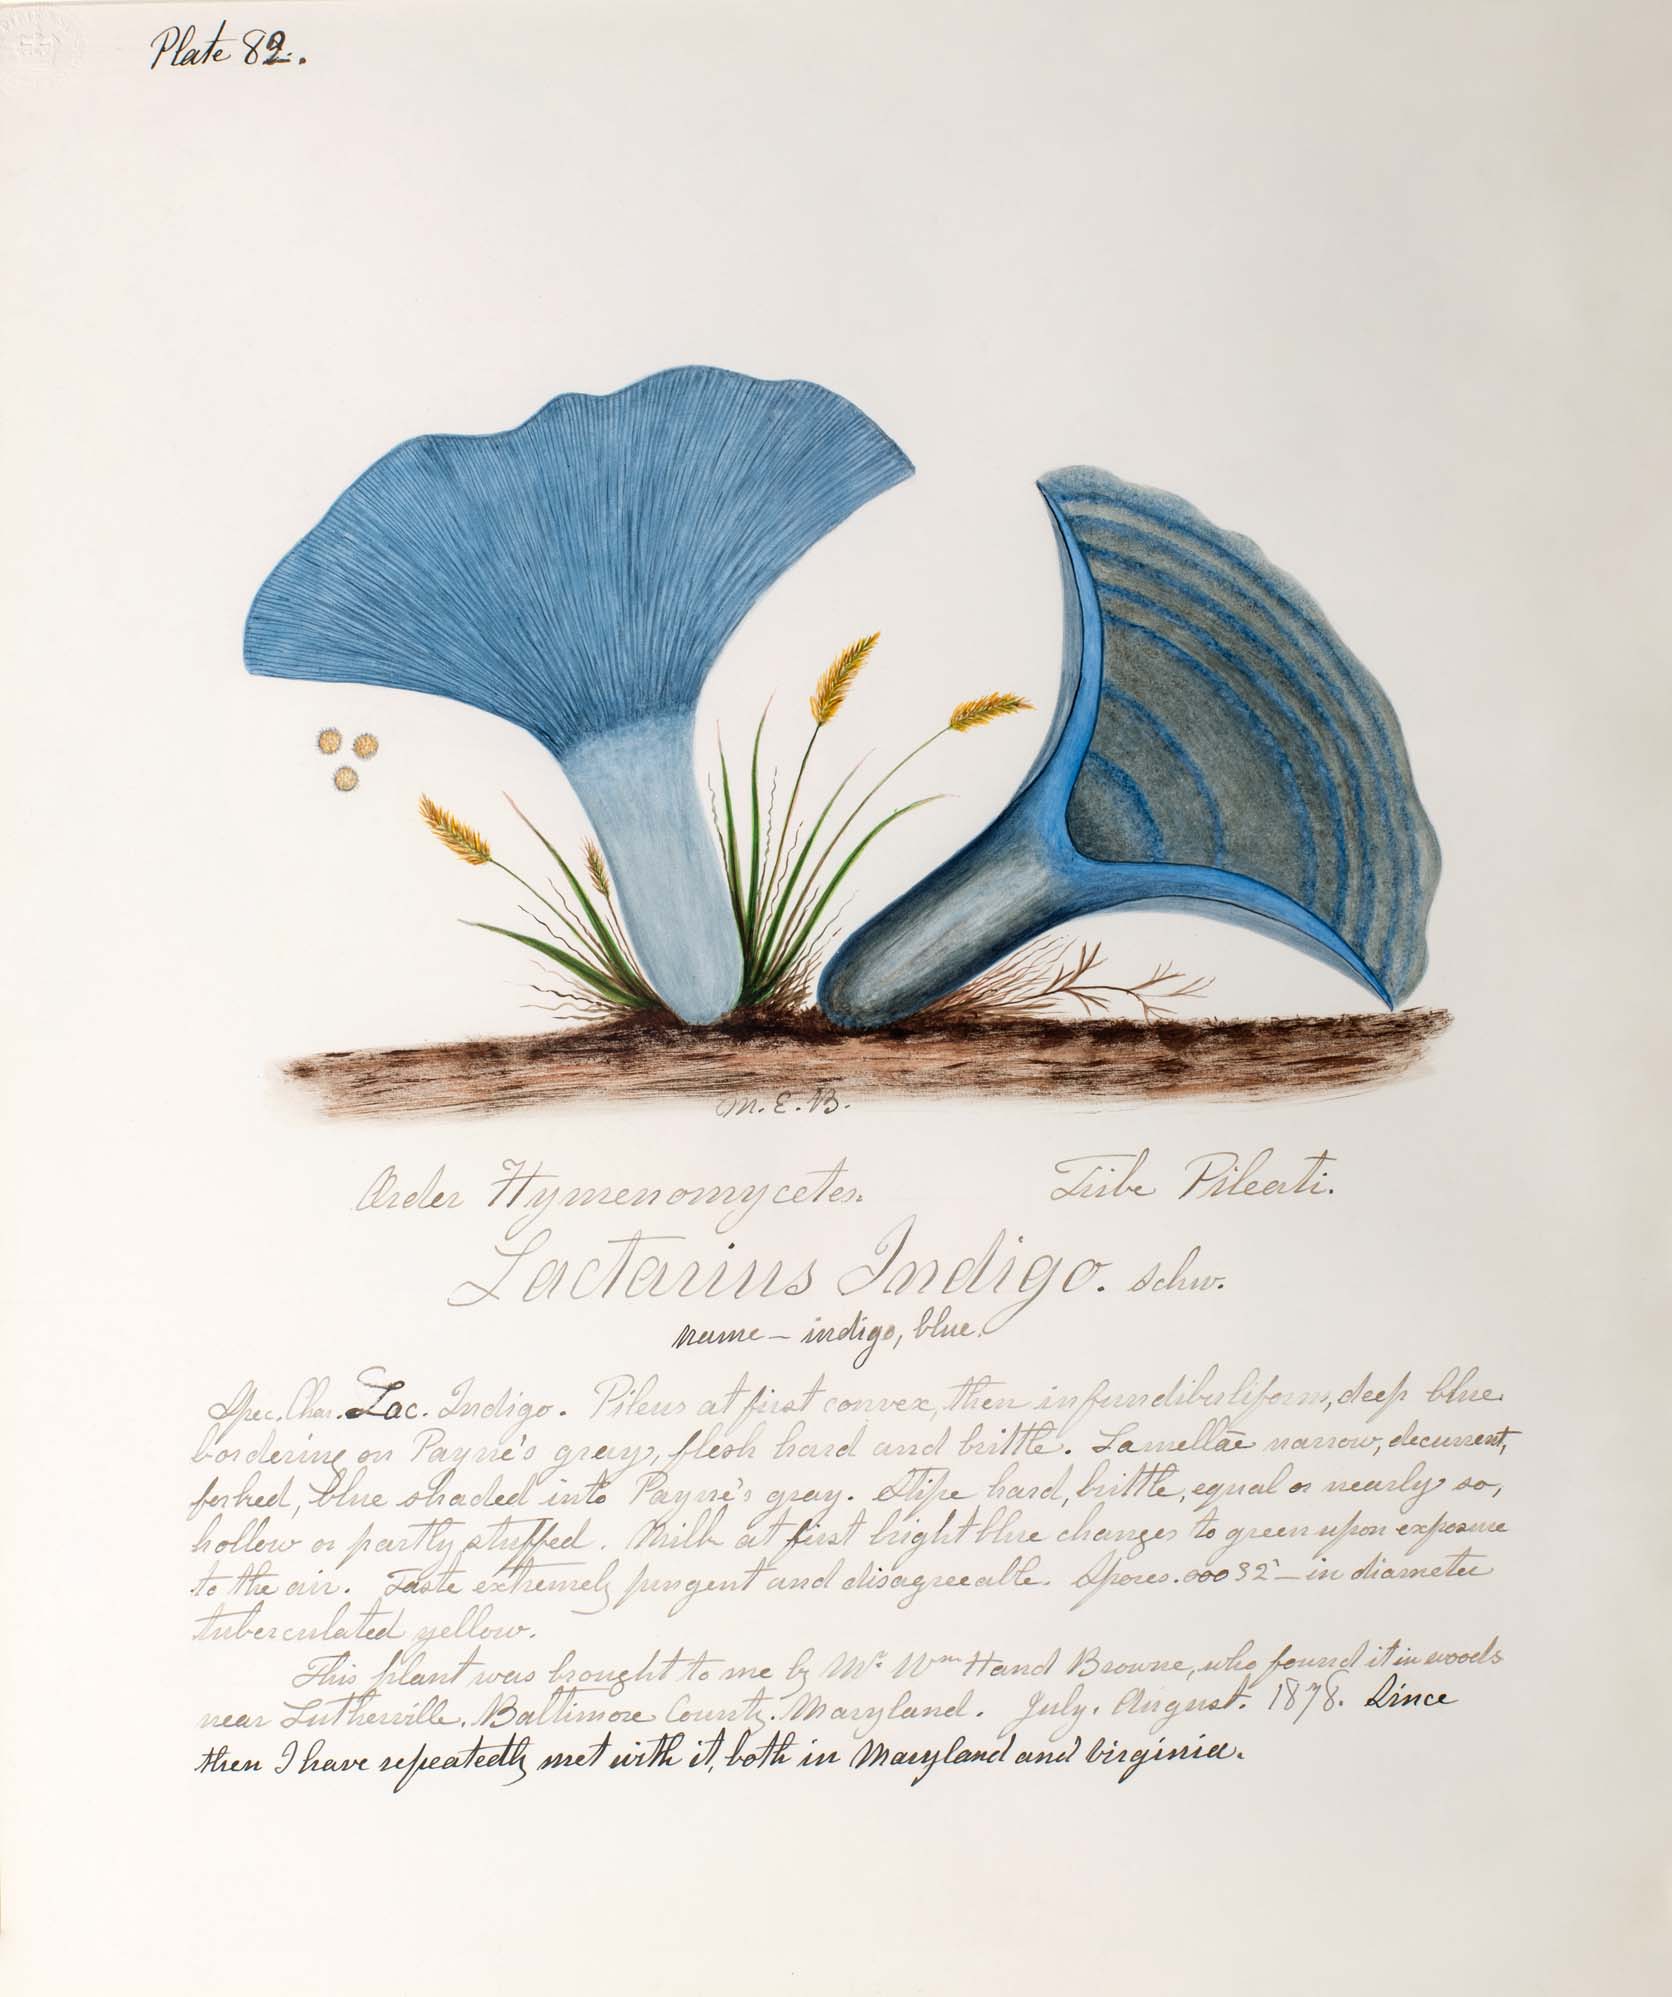 Plate 82.
M. E. B.
Order Hymenomycetes. Tribe Pileati.
Lactarius Indigo. Schw.
name – indigo, blue.
Spec. Char. Lac. Indigo. Pileus at first convex, then infundibuliform, deep blue
bordering on Payne's gray, flesh hard and brittle. Lamellae narrow, decurrent,
forked, blue shaded into Payne's gray. Stipe hard, brittle, equal or nearly so,
hollow or partly stuffed. Milk at first bright blue changes to green upon exposure
to the air. Taste extremely pungent and disagreeable. Spores .00032 – in diameter
tuberculated yellow.
This plant was brought to me by Mr Wm Hand Browne, who found it in woods
near Lutherville, Baltimore County, Maryland. July, August. 1878. Since
then I have repeatedly met with it, both in Maryland and Virginia.